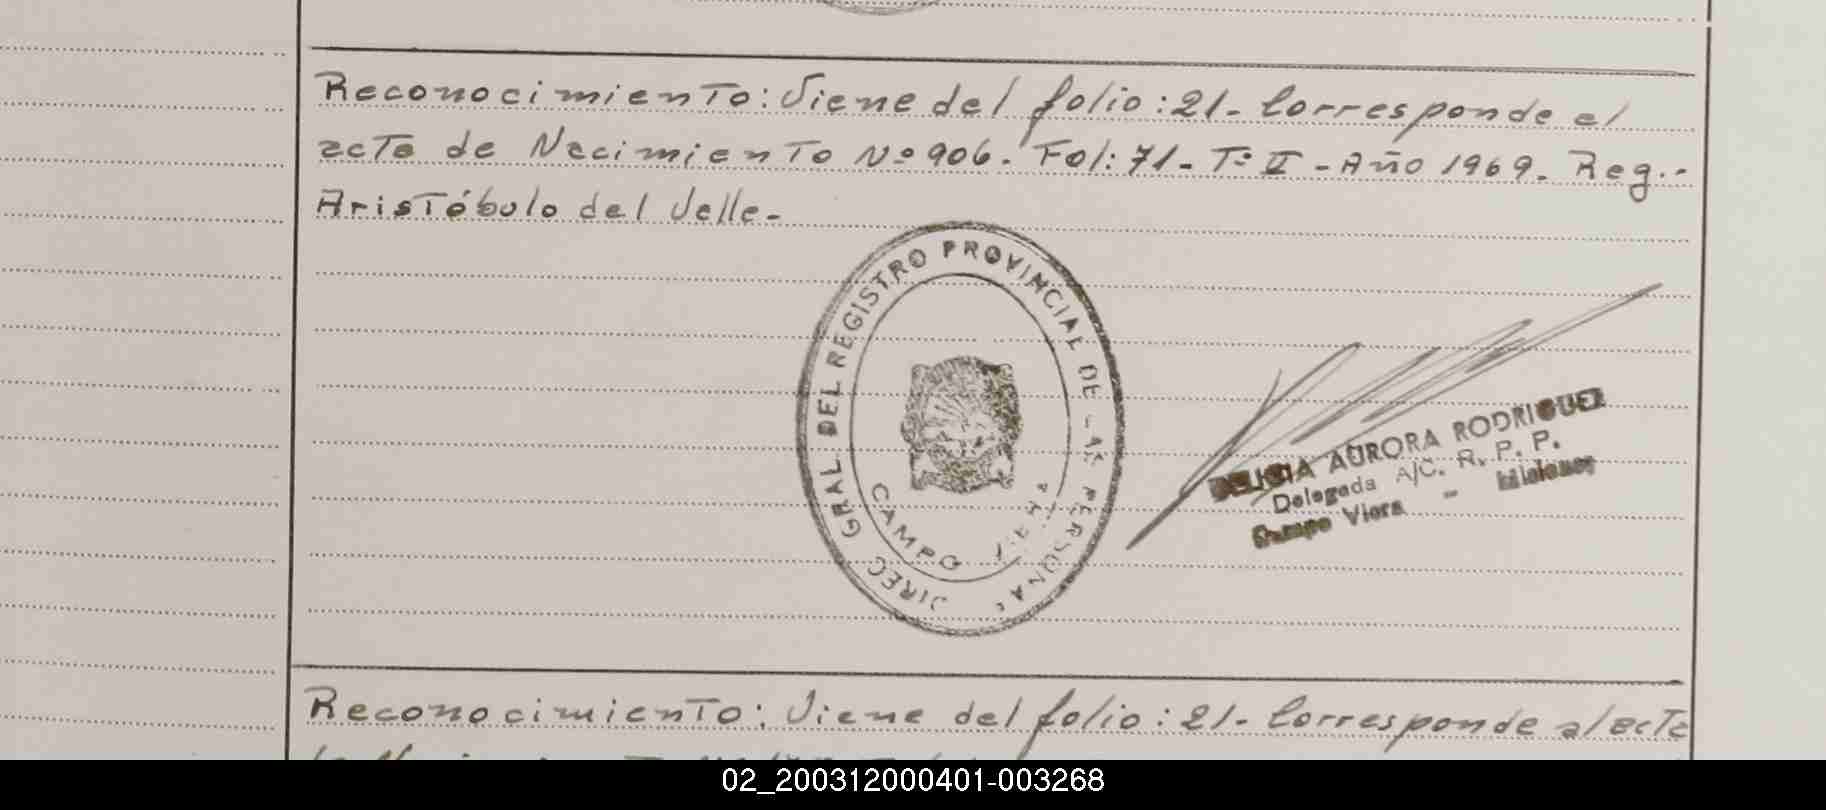 Reconocimiento: Viene del folio: 21- Corresponde al
acta de Nacimiento Nº 906. Fol: 71- Tº II - Año 1969. Reg.-
Aristóbulo del Valle-
DIREC GRAL DEL REGISTRO PROVINCIAL DE LAS PERSONAS
CAMPO VIERA
DELICIA AURORA RODRIGUEZ
Delegada A/C. R. P. P.
Campo Viera - Misiones
Reconocimiento: Viene del folio: 21- Corresponde al acta
02_200312000401-003268